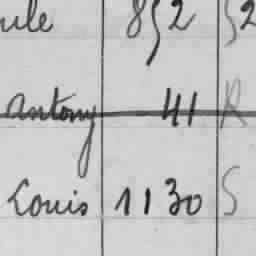 ule 852 S2
Antony 41 R
Louis 1130 S